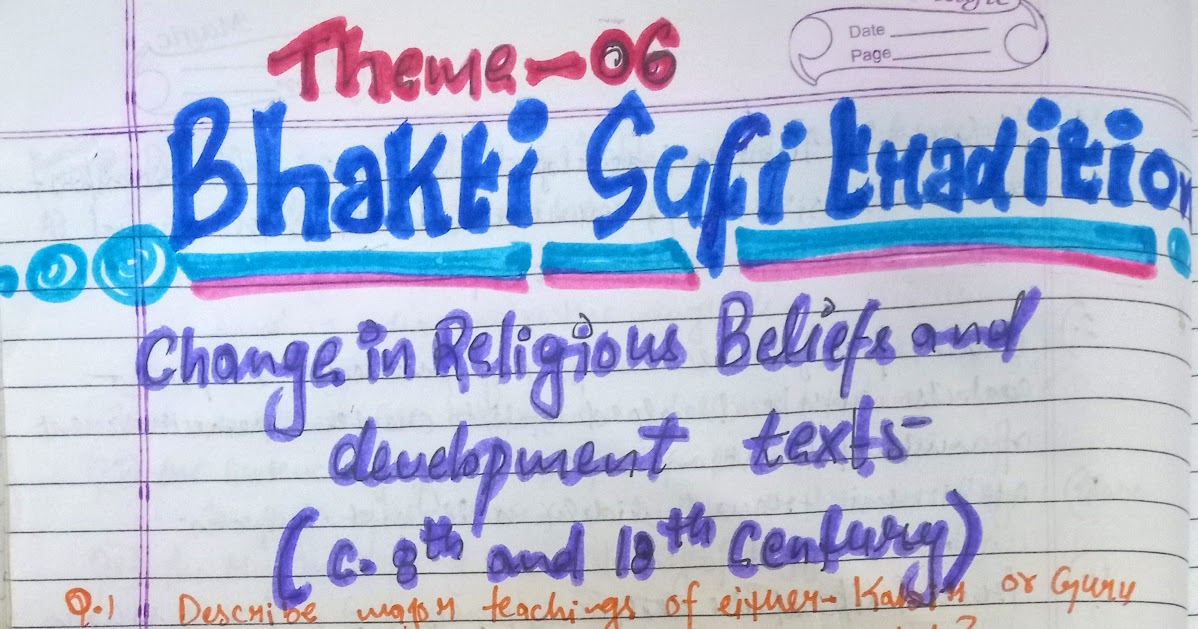 Date
Page
Theme-06
Bhakti Sufi tradition
Change in Religious Beliefs and
development texts-
(c. 8th and 18th century)
Q.1 Describe major teachings of either Kabir or Guru